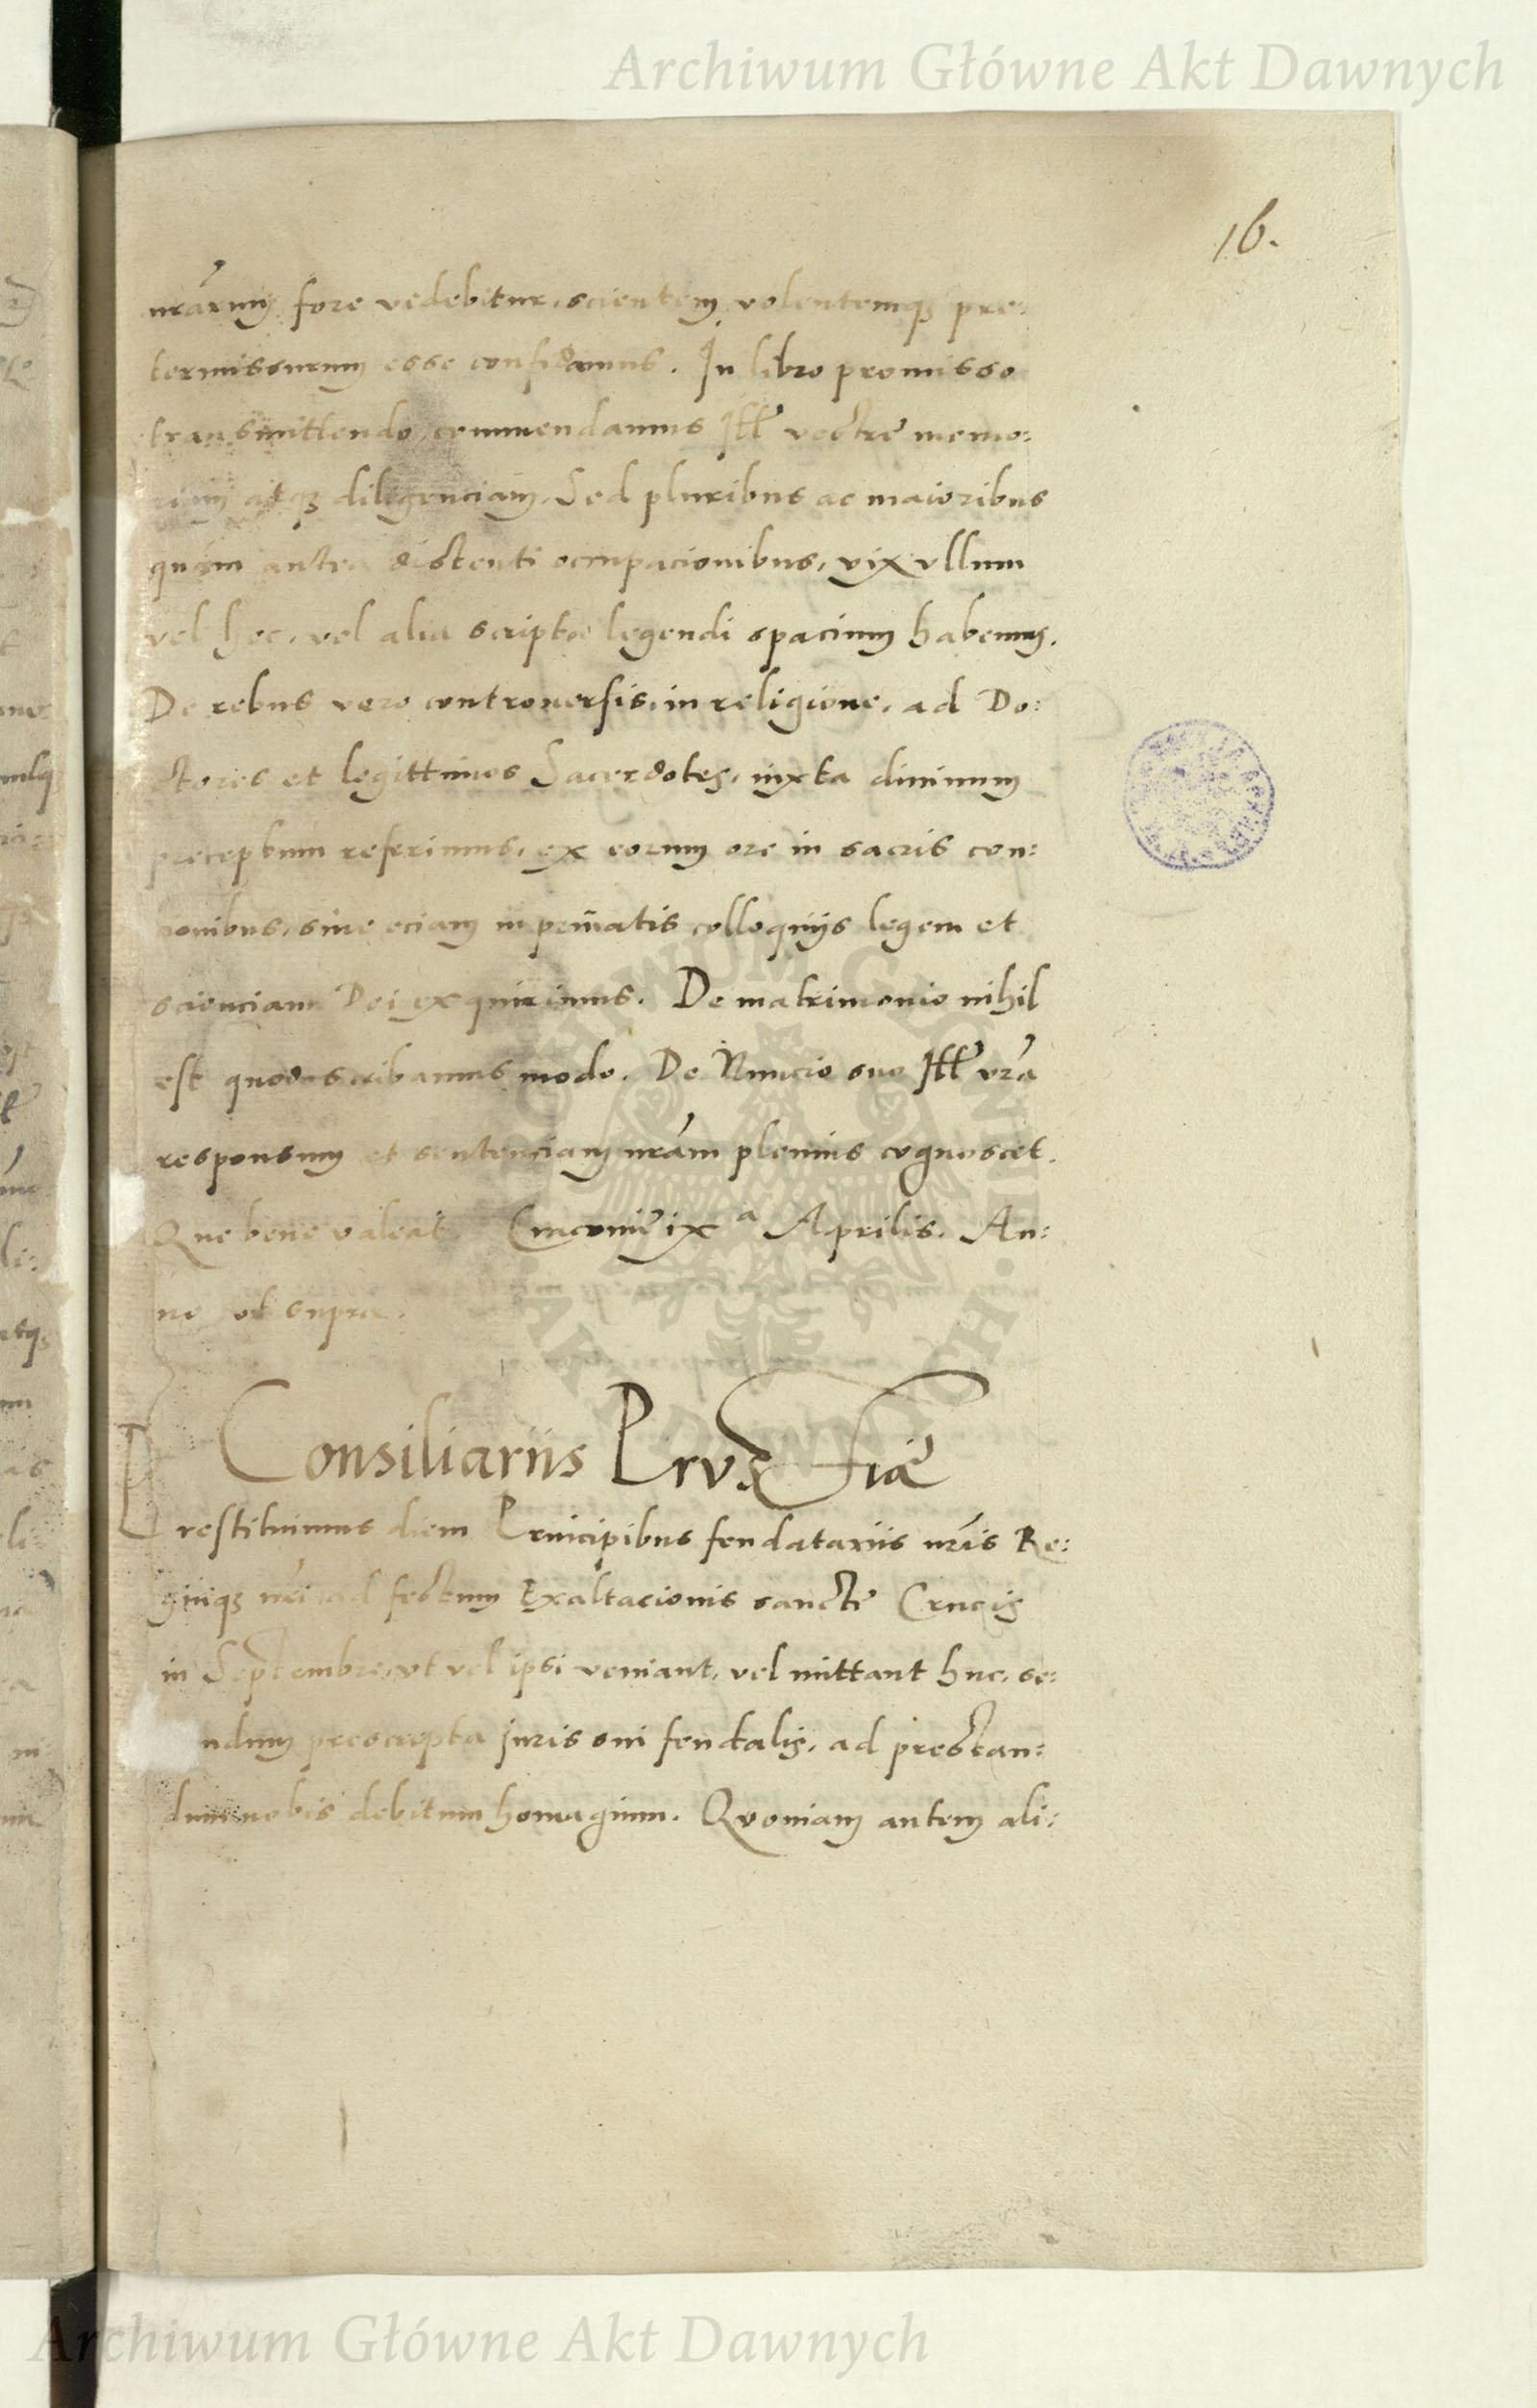 Archiwum Główne Akt Dawnych
16.
nrãrum fore vedebitur, scientem volentemqꝫ pre:
termissurum esse confidamus. In libro promisso
transmittendo, commendamus Ill͂ vestre memo:
riam atqꝫ diligenciam. Sed pluribus ac maioribus
quam antea distenti occupacionibus, vix vllum
vel hec, vel alia scripta legendi spacium habemus.
De rebus vero controuersis, in religione, ad Do:
ctores et legittimos Sacerdotes, iuxta diuinum
preceptum referimus, ex eorum ore in sacris con:
cionibus, siue eciam in priuatis colloquijs legem et
scienciam Dei exquirimus. De matrimonio nihil
est quod scribamus modo. De Nuncio suo Ill͂ vrã
responsum et sentenciam nrãm plenius cognoscet.
Que bene valeat. Cracouie ix a Aprilis. An:
no vt supra.
Consiliariis Prussiæ
Prestituimus diem Principibus feudatariis nrĩs Re:
gniqꝫ nrĩ ad festum Exaltacionis sancte Crucis
in Septembre, vt vel ipsi veniant, vel mittant huc, se:
ndum prescripta juris sui feudalis, ad prestan:
dum nobis debitum homagium. Quoniam autem ali:
ARCHIWUM GŁÓWNE · AKT DAWNYCH ·
Archiwum Główne Akt Dawnych